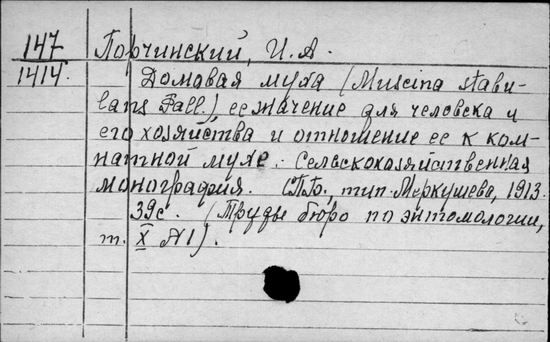 147 Порчинский, И. А.
1414. Домовая муха (Muscina stabu-
lans Fall.), ее значение для человека и
его хозяйства и отношение ее к ком-
натной мухе. Сельскохозяйственная
монография. СПб., тип. Меркушева, 1913.
39с. (Труды бюро по энтомологии,
т. X №1).